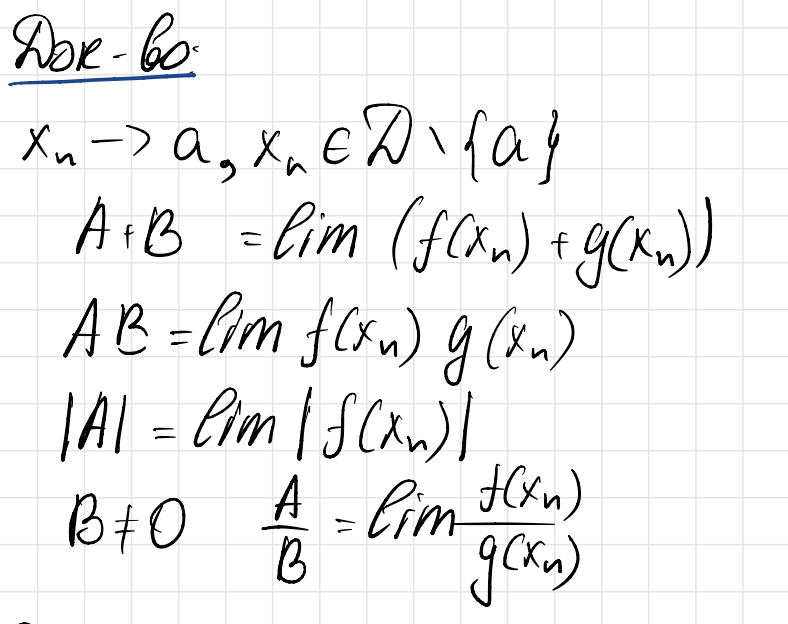 Док-во.
xₙ -> a, xₙ ∈ D \ {a}
A + B = lim (f(xₙ) + g(xₙ))
AB = lim f(xₙ) g(xₙ)
|A| = lim |f(xₙ)|
B ≠ 0 A/B = lim f(xₙ)/g(xₙ)